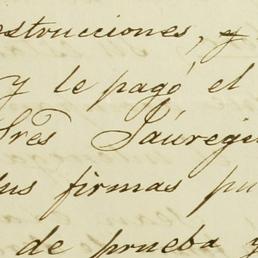 nstrucciones, y
y le pagó el
Sres Jáuregui
sus firmas pu
de prueba y